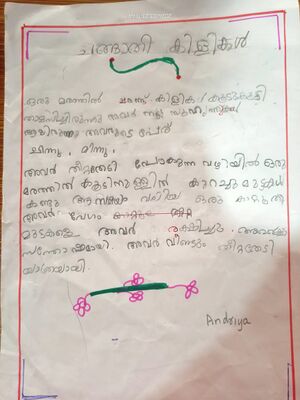 ചങ്ങാതി കിളികൾ
ഒരു മരത്തിൽ രണ്ട് കിളികൾ കൂടുകൂട്ടി
താമസിച്ചിരുന്നു അവർ നല്ല സുഹൃത്തുക്കൾ
ആയിരുന്നു അവരുടെ പേര്
ചിന്നു, മിന്നു,
അവർ തീറ്റതേടി പോകുന്ന വഴിയിൽ ഒരു
മരത്തിൽ കൂടിനുള്ളിൽ കുറച്ചു മുട്ടകൾ
കണ്ടു ആ സമയം വലിയ ഒരു കാറ്റുതി
അവർ വേഗം
മുട്ടകളെ അവർ രക്ഷിച്ചു. അവർക്കു
സന്തോഷമായി. അവർ വീണ്ടും തീറ്റതേടി
യാത്രയായി.
Andriya